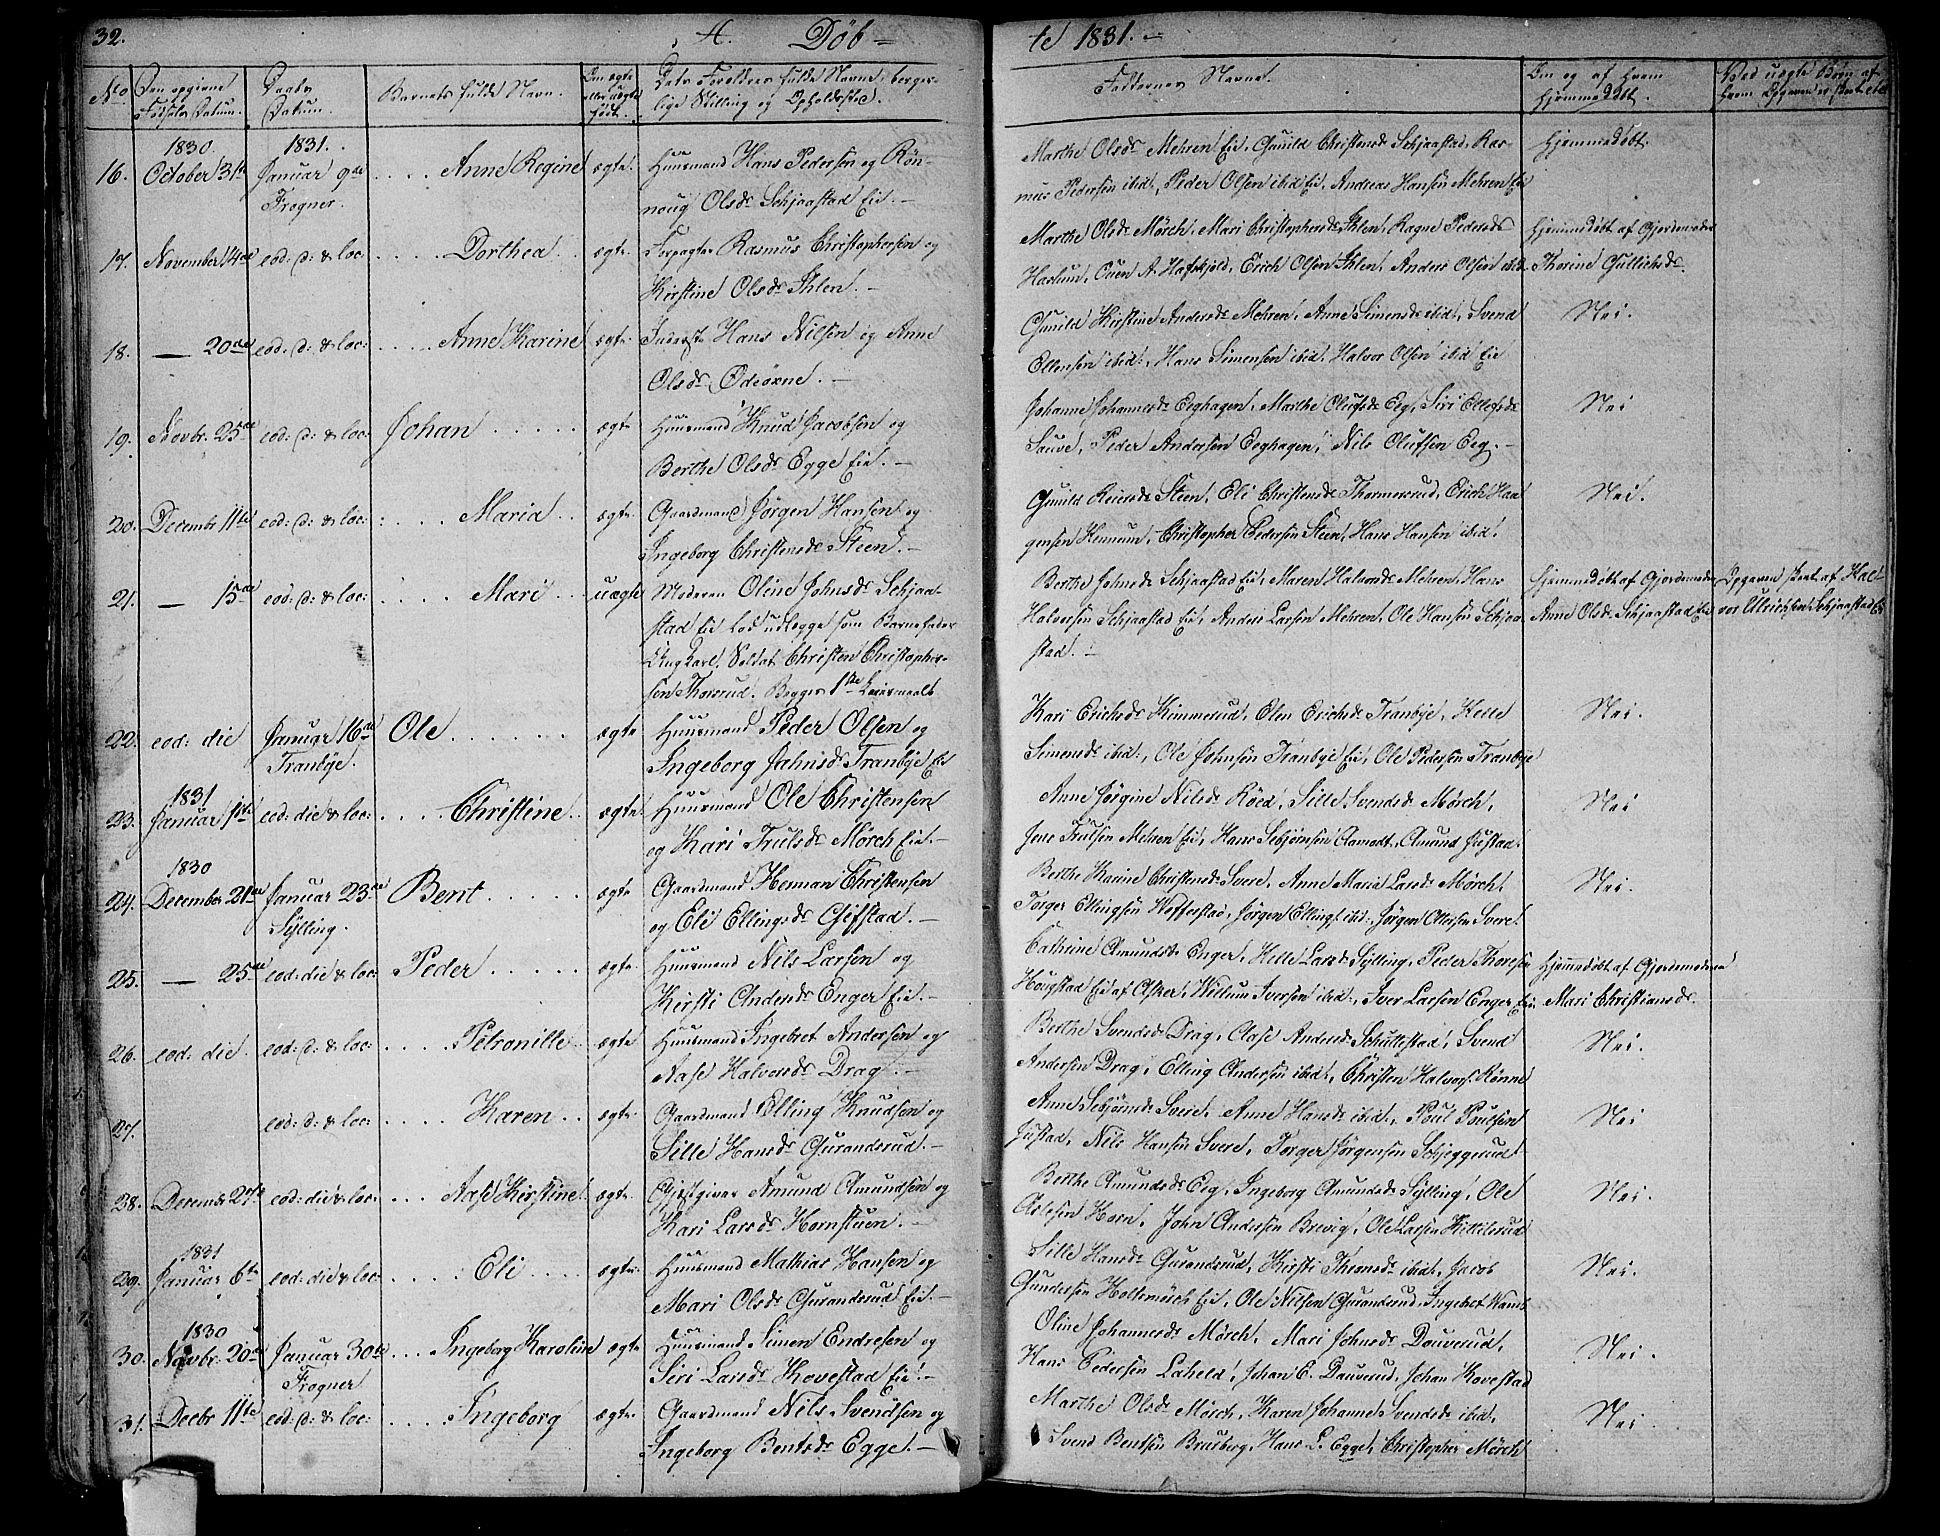 32. A. Döb=
te 1831.
No. Den opgivne Fødsels Datum. Daabs Datum. Barnets fulde Navn. Om ægte eller uægte født. Dets Forældres fulde Navne, borger-
lige Stilling og Opholdssted.
Faddernes Navne.
Om og af hvem Hjemmedøbt.
Ved uægte Børn af hvem Opgaven er skeet etc.
1830. 1831.
16. October 31te Januar 9de .... Anne Regine ægte. Huusmand Hans Pedersen og Rön-
Frogner. noug Olsdr Schjaastad Eie.
Marthe Olsdr Mehren Eie, Gunild Christensdr Schjaastad, Ras- Hjemmedøbt.
mus Pedersen ibid, Peder Olsen ibid Eie, Andreas Hansen Mehren Eie
17. November 14de eod: d: & loc: .... Dorthea ægte. Forpagter Rasmus Christophersen og
Kirstine Olsdr Ihlen.
Marthe Olsdr Mörch, Mari Christophersdr Ihlen, Ragne Pedersdr Hjemmedøbt af Gjordemoder
Haslum, Ouen A. Hafskjold, Erich Olsen Ihlen, Anders Olsen ibid. Thorine Gullichsdr.
18. — 20de eod: d: & loc: .... Anne Karine ægte. Inderste Hans Nilsen og Anne
Olsdr Ödeörne.
Gunild Kirstine Andersdr Mehren, Anne Simensdr ibid, Svend Nei.
Ellensen ibid, Hans Simensen ibid, Halvor Olsen ibid Eie
19. Novbr. 25de eod: d: & loc: Johan ..... ægte Huusmand Knud Jacobsen og
Berthe Olsdr Egge Eie.
Johanne Johannesdr Eeghagen, Marthe Olufsdr Eeg, Siri Ellefsdr Nei
Sauve, Peder Andersen Eeghagen, Nils Olufsen Eeg.
20. Decembr 11te eod: d: & loc: .... Maria ægte. Gaardmand Jörgen Hansen og
Ingeborg Christensdr Steen.
Gunild Reiersdr Steen, Eli Christensdr Thormersrud, Erich Haa- Nei.
gensen Kennum, Christopher Pedersen Steen, Hans Hansen ibid.
21. — 15de eod: d: & loc: .... Mari uægte Moderen Oline Johnsdr Schjaa-
stad Eie lod udlægge som Barnefader
Ungkarl, Soldat Christen Christopher-
sen Thorsrud. Begges 1ste Leiermaal
Berthe Johnsdr Schjaastad Eie, Maren Halvorsdr Mehren, Hans Hjemmedøbt af Gjordemoder Opgaven skeet af Hal-
Halvorsen Schjaastad Eie, Anders Larsen Mehren, Ole Hansen Schjaa- Anne Olsdr Schjaastad Eie vor Ulrichsen Schjaastad Eie
stad.
22. eod: die Januar 16de Ole ...... ægte Huusmand Peder Olsen og
Tranbye. Ingeborg Jahnsdr Tranbye Eie
Kari Erichsdr Kimmerud, Elen Erichsdr Tranbye, Helle Nei.
Simensdr ibid, Ole Johnsen Tranbye Eie, Ole Pedersen Tranbye
1831
23. Januar 1te eod: die & loc: .... Christine ægte. Huusmand Ole Christensen
og Kari Trulsdr Mörch Eie.
Anne Jörgine Nilsdr Röed, Sille Svendsdr Mörch, Nei
Jens Trulsen Mehren Eie, Hans Sebjörnsen Aamodt, Amund Justad.
1830
24. December 21de Januar 23de Bent ..... ægte Gaardmand Herman Christensen
Sylling. og Eli Ellingsdr Gifstad.
Berthe Karine Christensdr Svere, Anne Maria Larsdr Mörch, Nei.
Torger Ellingsen Hofferstad, Jörgen Ellings. ibid, Jörgen Ottersen Svere.
25. — 25de eod: die & loc: Peder ..... ægte. Huusmand Nils Larsen og
Kirsti Andersdr Enger Eie.
Cathrine Amundsdr Enger, Helle Larsdr Sylling, Peder Thoresen Hjemmedøbt af Gjordemoderen
Hougstad Eie af Asker, Willum Iversen ibid, Iver Larsen Enger Eie Mari Christiansdr.
26. eod: die. eod: d: & loc: .... Petronille ægte Huusmand Ingebret Andersen og
Aase Halvorsdr Drag.
Berthe Svendsdr Drag, Aase Andersdr Schullestad, Svend Nei.
Andersen Drag, Elling Andersen ibid, Christen Halvors. Rönne
27. eod: d: & loc: .... Karen ægte. Gaardmand Elling Knudsen og
Sille Hansdr Gurandsrud.
Anne Sebjörnsdr Svere, Anne Hansdr ibid, Poul Poulsen Nei
Justad, Nils Hansen Svere, Torger Jörgensen Schjeggerud
28. Decembr 27de eod: die & loc: ... Aase Kirstine ægte. Gjæstgiver Amund Amundsen og
Kari Larsdr Hornstuen.
Berthe Amundsdr Eeg, Ingeborg Amundsdr Sylling, Ole Nei.
Aslesen Horn, John Andersen Brevig, Ole Larsen Kittilsrud
1831
29. Januar 6te eod: die & loc: .... Eli .... ægte. Huusmand Mathias Hansen og
Mari Olsdr Gurandsrud Eie.
Sille Hansdr Gurandsrud, Kirsti Thronsdr ibid, Jacob Nei.
Gundersen Holtsmörch Eie, Ole Nilsen Gurandsrud, Ingebret
1830
30. Novbr. 20de Januar 30te ... Ingeborg Karoline ægte Huusmand Simen Endresen og
Frogner Siri Larsdr Kovestad Eie.
Oline Johannesdr Mörch, Mari Johnsdr Dauverud, Nei.
Hans Pedersen Laheld, Johan E. Dauverud, Johan Kovestad
31. Decbr 11te eod: d: & loc: .... Ingeborg ægte. Gaardmand Nils Svendsen og
Ingeborg Bentsdr Egge.
Marthe Olsdr Mörch, Karen Johanne Svendsdr ibid, Nei
Svend Bentsen Brusberg, Hans L. Egge, Christopher Mörch